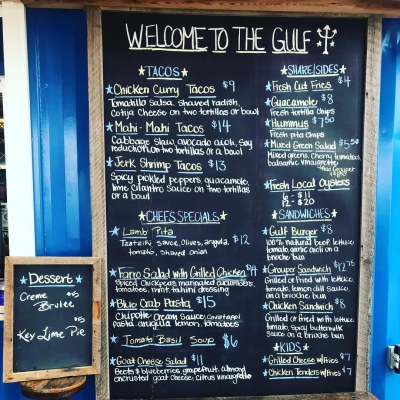 WELCOME TO THE GULF
TACOS
Chicken Curry Tacos $9
Tomatillo Salsa, shaved radish,
Cotija Cheese on two tortillas or bowl
Mahi-Mahi Tacos $14
Cabbage slaw, avocado aioli, soy
reduction on two tortillas or a bowl
Jerk Shrimp Tacos $13
Spicy pickled peppers, guacamole,
lime cilantro sauce on two tortillas
or a bowl
CHEF'S SPECIALS
Lamb Pita
Tzatziki sauce, olives, arugula, $12
tomato, shaved onion
Farro Salad with Grilled Chicken
spiced chickpeas, marinated cucumbers,
tomatoes, mint, tahini dressing
Blue Crab Pasta $15
Chipotle Cream Sauce,
pasta, arugula, lemon, tomatoes
Tomato Basil Soup $6
Goat Cheese Salad $11
Beets & blueberries, grapefruit, almond
encrusted goat cheese, citrus vinaigrette
SHARE/SIDES
Fresh Cut Fries $4
Guacamole $8
Fresh tortilla chips
Hummus $7.50
Fresh pita chips
Mixed Green Salad $5.50
Mixed greens, cherry tomatoes,
balsamic vinaigrette
Fresh Local Oysters
6 - $11
12 - $20
SANDWICHES
Gulf Burger $8
100% natural beef, lettuce,
tomato, garlic aioli on a
brioche bun
Grouper Sandwich $12.75
Grilled or fried with lettuce,
tomato, lemon dill sauce
on a brioche bun
Chicken Sandwich $8
Grilled or fried with lettuce,
tomato, spicy buttermilk
sauce on a brioche bun
KIDS
Grilled Cheese w/Fries $7
Chicken Tenders w/Fries $7
Dessert
Creme $5
Brulee
$5
Key Lime Pie